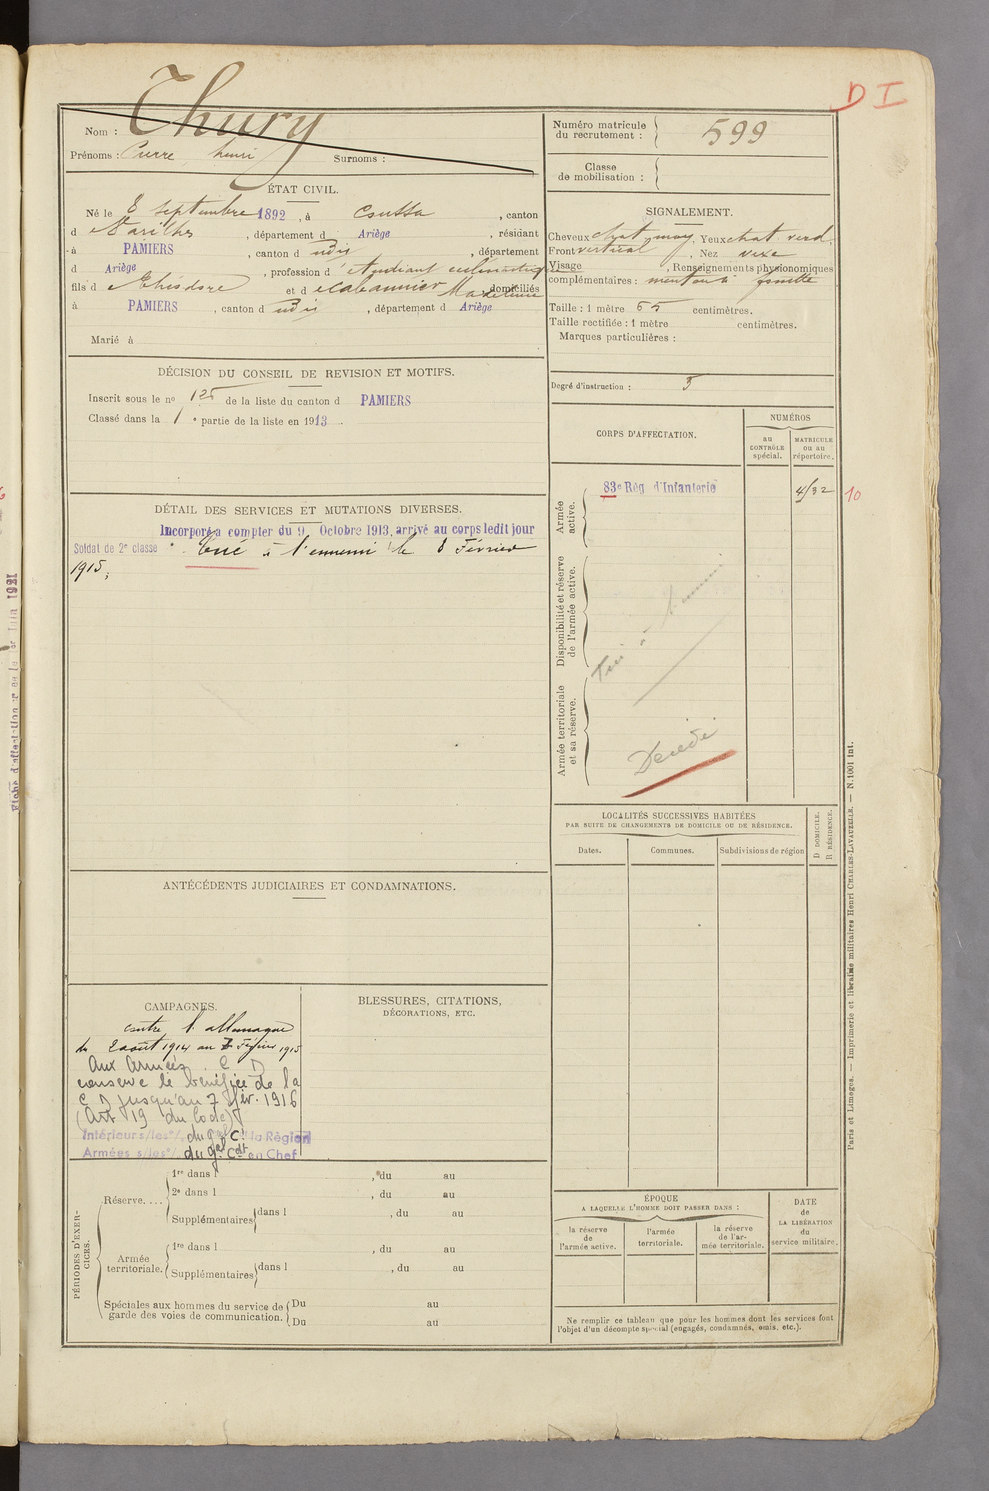 D I
Thury
Nom :
Prénoms : Pierre henri Surnoms :
Numéro matricule du recrutement : 599
Classe de mobilisation :
ÉTAT CIVIL.
Né le 8 septembre 1892, à Coussa, canton
d Varilhes, département d Ariège, résidant
à PAMIERS, canton d udit, département
d Ariège, profession d étudiant ecclésiastique
fils d Théodore et d Cabannier Madeleine domiciliés
à PAMIERS, canton d udit, département d Ariège
Marié à
SIGNALEMENT.
Cheveux chat moy, Yeux chat verd.
Front vertical, Nez vexe
Visage , Renseignements physionomiques
complémentaires : menton à fossette
Taille : 1 mètre 65 centimètres.
Taille rectifiée : 1 mètre centimètres.
Marques particulières :
Degré d'instruction : 3
DÉCISION DU CONSEIL DE REVISION ET MOTIFS.
Inscrit sous le no 125 de la liste du canton d PAMIERS
Classé dans la 1e partie de la liste en 1913.
CORPS D'AFFECTATION.
NUMÉROS
au CONTRÔLE spécial.
MATRICULE ou au répertoire.
Armée active.
83e Rég d'Infanterie
4/32
10
Disponibilité et réserve de l'armée active.
Tué à l'ennemi
Armée territoriale et sa réserve.
Décédé
DÉTAIL DES SERVICES ET MUTATIONS DIVERSES.
Incorporé a compter du 9 Octobre 1913, arrivé au corps ledit jour
Soldat de 2e classe. Tué à l'ennemi le 8 Février
1915;
LOCALITÉS SUCCESSIVES HABITÉES
PAR SUITE DE CHANGEMENTS DE DOMICILE OU DE RÉSIDENCE.
Dates.
Communes.
Subdivisions de région
D DOMICILE.
R RÉSIDENCE.
ANTÉCÉDENTS JUDICIAIRES ET CONDAMNATIONS.
CAMPAGNES.
contre l'allemagne
du 2 août 1914 au 7 Février 1915
Aux Armées. C D
conserve le bénéfice de la
C D jusqu'au 7 fév. 1916
(Art 19 du Code)
Intérieur s/les o/. du gal Ct la Région
Armées s/les o/. du gal Cdt en Chef
BLESSURES, CITATIONS,
DÉCORATIONS, ETC.
PÉRIODES D'EXERCICES.
Réserve....
1re dans l , du au
2e dans l , du au
Supplémentaires dans l , du au
Armée territoriale.
1re dans l , du au
Supplémentaires dans l , du au
Spéciales aux hommes du service de garde des voies de communication.
Du au
Du au
ÉPOQUE
A LAQUELLE L'HOMME DOIT PASSER DANS :
la réserve de l'armée active.
l'armée territoriale.
la réserve de l'armée territoriale.
DATE de LA LIBÉRATION du service militaire.
Ne remplir ce tableau que pour les hommes dont les services font
l'objet d'un décompte spécial (engagés, condamnés, omis, etc.).
Paris et Limoges. — Imprimerie et librairie militaires Henri CHARLES-LAVAUZELLE. — N. 1001 int.